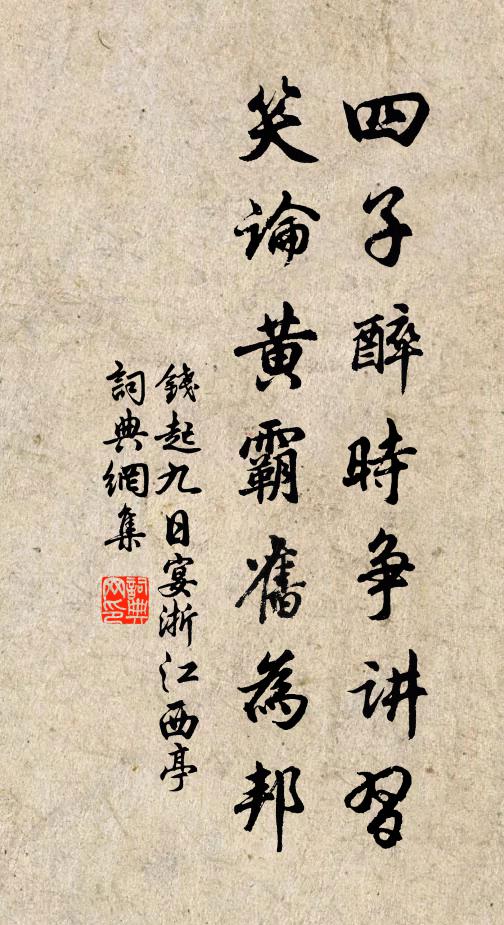 四子醉時争讲習
笑論黄霸舊為邦
錢起九日宴浙江西亭
詞典網集
詞典网印